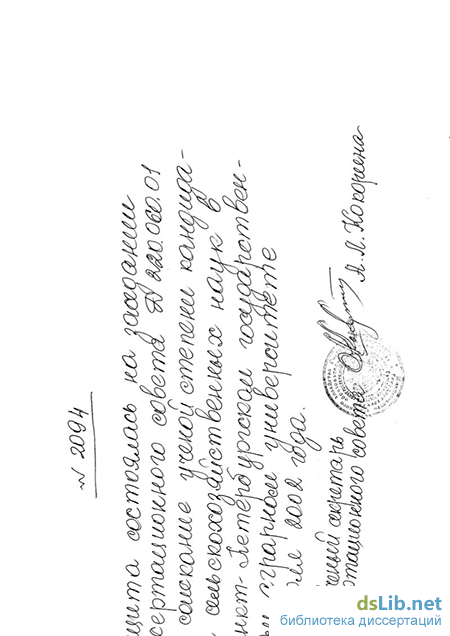 № 2094
щита состоялась на заседании
сертационного совета Д 220.060.01
соискание ученой степени кандида-
сельскохозяйственных наук в
нкт-Петербургском государствен-
аграрном университете
2002 года.
ный секретарь
тационного совета А.М. Кокорина
dsLib.net
библиотека диссертаций